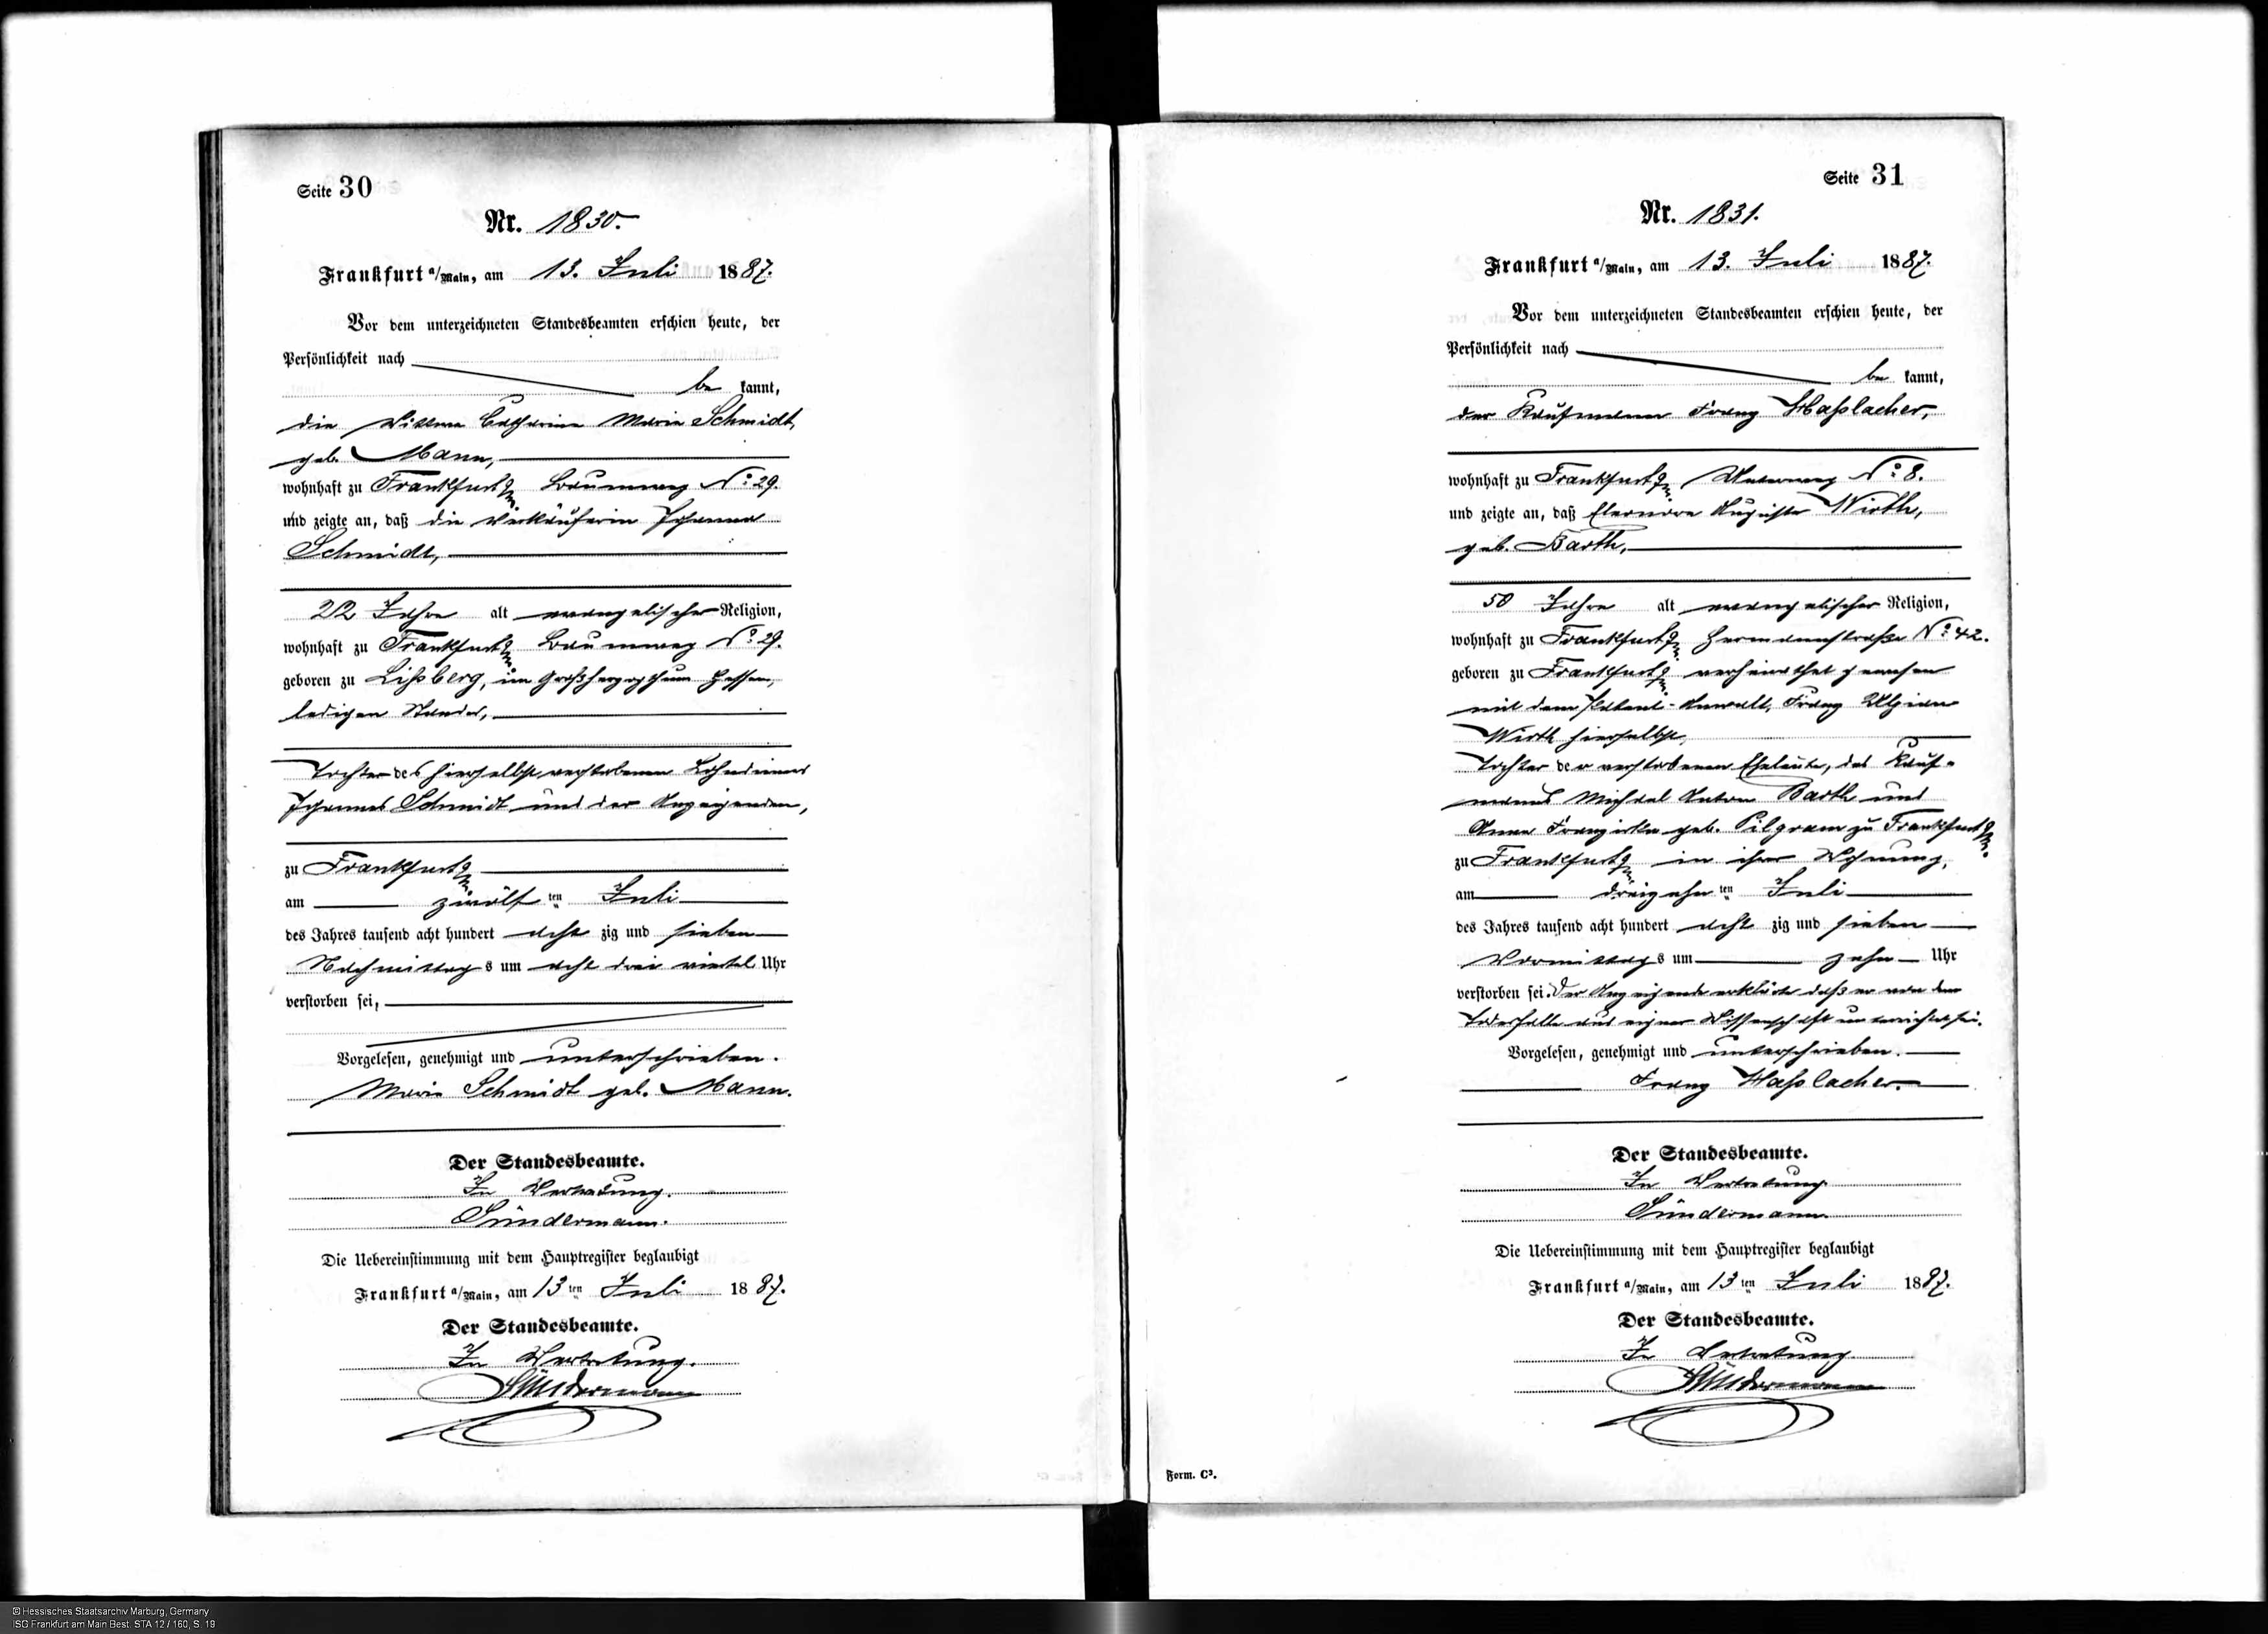 Seite 30
Nr. 1830.
Frankfurt a/Main, am 13. Juli 1887.
Vor dem unterzeichneten Standesbeamten erschien heute, der
Persönlichkeit nach
be kannt,
die Wittwe Catharine Marie Schmidt,
geb. Mann,
wohnhaft zu Frankfurt a/M. Baumweg No. 29.
und zeigte an, daß die Verkäuferin Johanna
Schmidt,
22 Jahre alt evangelischer Religion,
wohnhaft zu Frankfurt a/M. Baumweg No. 29.
geboren zu Lißberg, im Großherzogthum Hessen,
ledigen Standes,
Tochter des hierselbst verstorbenen Lohndieners
Johannes Schmidt und der Anzeigenden,
zu Frankfurt a/M.
am zwölf ten Juli
des Jahres tausend acht hundert acht zig und sieben
Nachmittag s um acht drei viertel Uhr
verstorben sei,
Vorgelesen, genehmigt und unterschrieben.
Marie Schmidt geb. Mann.
Der Standesbeamte.
In Vertretung.
Sündermann.
Die Uebereinstimmung mit dem Hauptregister beglaubigt
Frankfurt a/Main, am 13 ten Juli 1887.
Der Standesbeamte.
In Vertretung.
Sündermann
Seite 31
Nr. 1831.
Frankfurt a/Main, am 13. Juli 1887.
Vor dem unterzeichneten Standesbeamten erschien heute, der
Persönlichkeit nach
be kannt,
der Kaufmann Franz Haßlacher,
wohnhaft zu Frankfurt a/M. Unterweg No. 8.
und zeigte an, daß Eleonore Auguste Wirth,
geb. Barth,
50 Jahre alt evangelischer Religion,
wohnhaft zu Frankfurt a/M. Hermannstraße No. 42.
geboren zu Frankfurt a/M. verheirathet gewesen
mit dem Patent-Anwalt, Franz Ulpian
Wirth hierselbst,
Tochter der verstorbenen Eheleute, des Kauf-
manns Michael Anton Barth und
Anna Franziska geb. Pilgram zu Frankfurt a/M.
zu Frankfurt a/M. in ihrer Wohnung,
am dreizehn ten Juli
des Jahres tausend acht hundert acht zig und sieben
Vormittag s um zehn Uhr
verstorben sei. Der Anzeigende erklärte daß er von dem
Todesfalle aus eigener Wissenschaft unterrichtet sei.
Vorgelesen, genehmigt und unterschrieben.
Franz Haßlacher.
Der Standesbeamte.
In Vertretung
Sündermann.
Die Uebereinstimmung mit dem Hauptregister beglaubigt
Frankfurt a/Main, am 13 ten Juli 1887.
Der Standesbeamte.
In Vertretung
Sündermann
Form. C3.
© Hessisches Staatsarchiv Marburg, Germany
ISG Frankfurt am Main Best. STA 12 / 160, S. 19